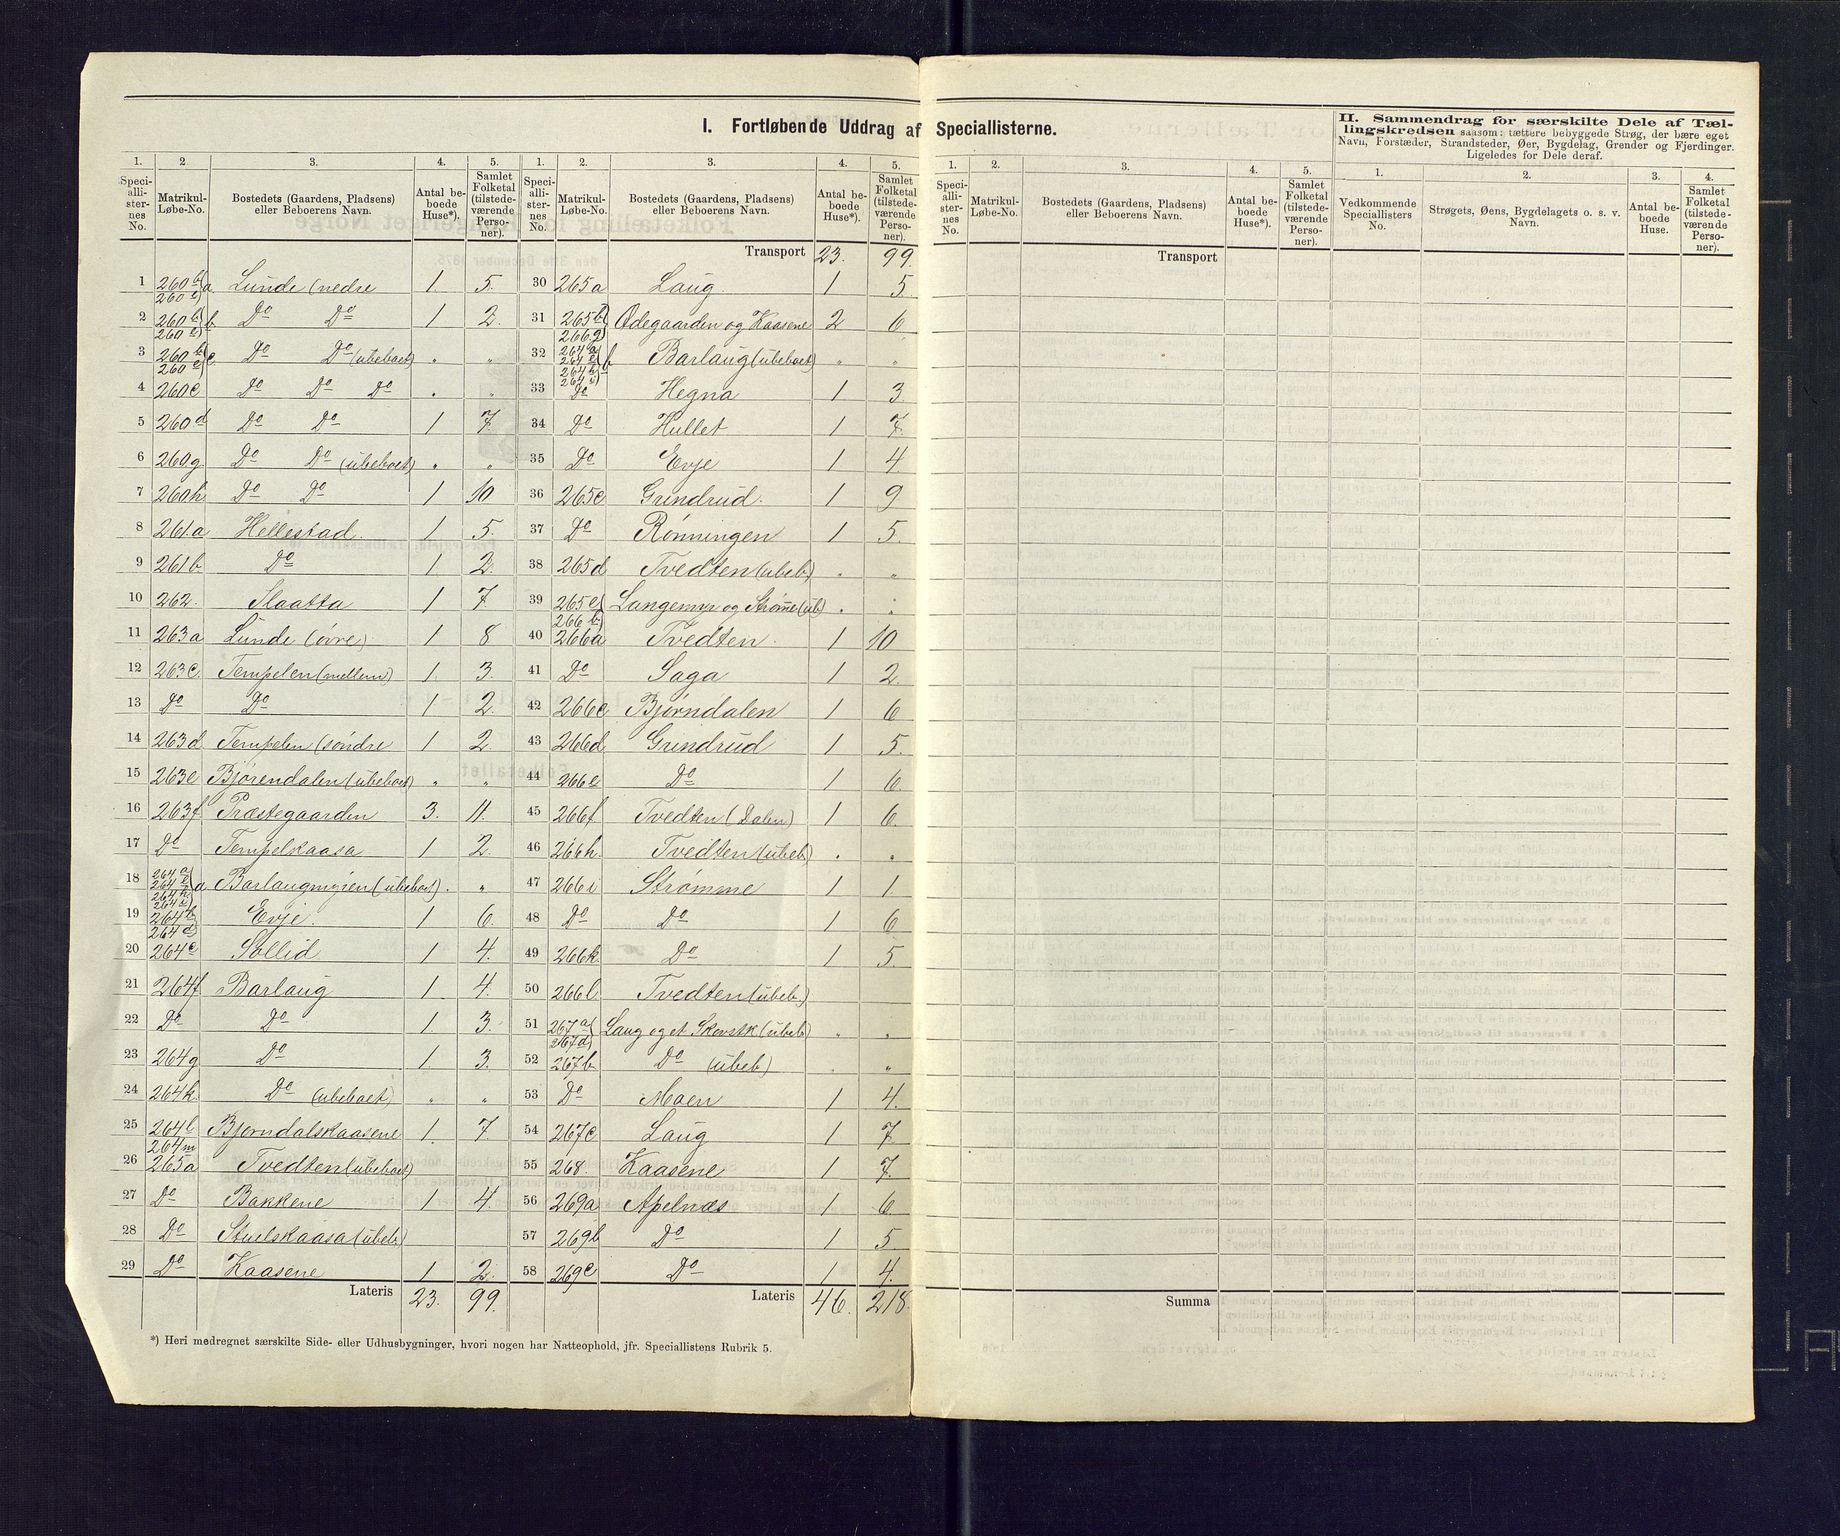 I. Fortløbende Uddrag af Speciallisterne.
II. Sammendrag for særskilte Dele af Tællingskredsen saasom: tættere bebyggede Strøg, der bære eget Navn, Forstæder, Strandsteder, Øer, Bygdelag, Grender og Fjerdinger. Ligeledes for Dele deraf.
1. 2 3. 4. 5. 1. 2. 3. 4. 5.
Speciallisternes No. Matrikul-Løbe-No. Bostedets (Gaardens, Pladsens) eller Beboerens Navn. Antal beboede Huse*). Samlet Folketal (tilstedeværende Personer). Speciallisternes No. Matrikul-Løbe-No. Bostedets (Gaardens, Pladsens) eller Beboerens Navn. Antal beboede Huse*). Samlet Folketal (tilstedeværende Personer).
Transport 23. 99.
1 260b 260e a Lunde (nedre 1. 5.
2 260b 260e b Do Do 1 2.
3 260b 260e c Do Do (ubeboet) " "
4 260c Do Do Do " "
5 260d Do Do 1 7.
6 260g Do Do (ubeboet) " "
7 260h Do Do 1 10
8 261a Hellestad. 1 5.
9 261b. Do 1 2.
10 262. Slaatta 1 7
11 263a Lunde (øvre) 1 8
12 263c. Tempelen (mellem) 1. 3.
13 Do Do 1 2.
14 263d Tempelen (søndre 1 2.
15 263e Bjørendalen (ubeboet) " "
16 263f Præstegaarden 3. 11.
17 Do Tempelkaasa 1 2.
18 264a a Barlaugmyren (ubeboet) . "
19 264b 264d Evje. 1 6.
20 264c Sollid 1 4.
21 264f Barlaug 1. 4.
22 Do Do 1 3.
23 264g Do 1 3.
24 264k. Do (ubeboet) " "
25 264l 264m Bjørndalskaasene 1. 7
26 265a Tvedten (ubeboet)
27 Do Bakkene 1 4
28 Do Stuelskaasa (ubeb.)
29 Do Kaasene 1 2.
Lateris 23. 99.
30 265a Laug. 1 5.
31 265b 266g Ødegaarden og Kaasene 2 6
32 264a b Barlaug (ubeboet) "
33 Do Hegna 1 3.
34 Do Hullet 1 7.
35 Do Evje 1 4.
36 265c Grindrud. 1 9
37 Do Rønningen 1 5.
38 265d Tvedten (ubeb.) . "
39 265e 266b Langemyr og Strømme (ub.) . .
40 266a Tvedten. 1 10
41 Do Saga 1 2.
42 266c Bjørndalen 1 6
43 266d Grindrud 1 5.
44 266e Do 1 6.
45 266f Tvedten (Dalen) 1 6.
46 266h. Tvedten (ubeb.) . "
47 266i Strømme 1 1.
48 Do Do 1 6
49 266k. Do 1 5.
50 266l. Tvedten (ubeb.)
51 267a 267d Laug og et Skovstk (ubeb.) " "
52 267b Do (ubeb.) . "
53 Do Moen 1 4.
54 267c Laug 1 7
55 268. Kaasene 1 7.
56 269a Apelnæs 1 6
57 269b Do 1 5.
58 269c Do 1 4.
Lateris 46. 218.
*) Heri medregnet særskilte Side- eller Udhusbygninger, hvori nogen har Natteophold, jfr. Speciallistens Rubrik 5.
1. 2. 3. 4. 5. 1. 2. 3. 4.
Speciallisternes No. Matrikul-Løbe-No. Bostedets (Gaardens, Pladsens) eller Beboerens Navn. Antal beboede Huse*). Samlet Folketal (tilstedeværende Personer). Vedkommende Speciallisters No. Strøgets, Øens, Bygdelagets o. s. v. Navn. Antal beboede Huse. Samlet Folketal (tilstedeværende Personer).
Transport
Summa